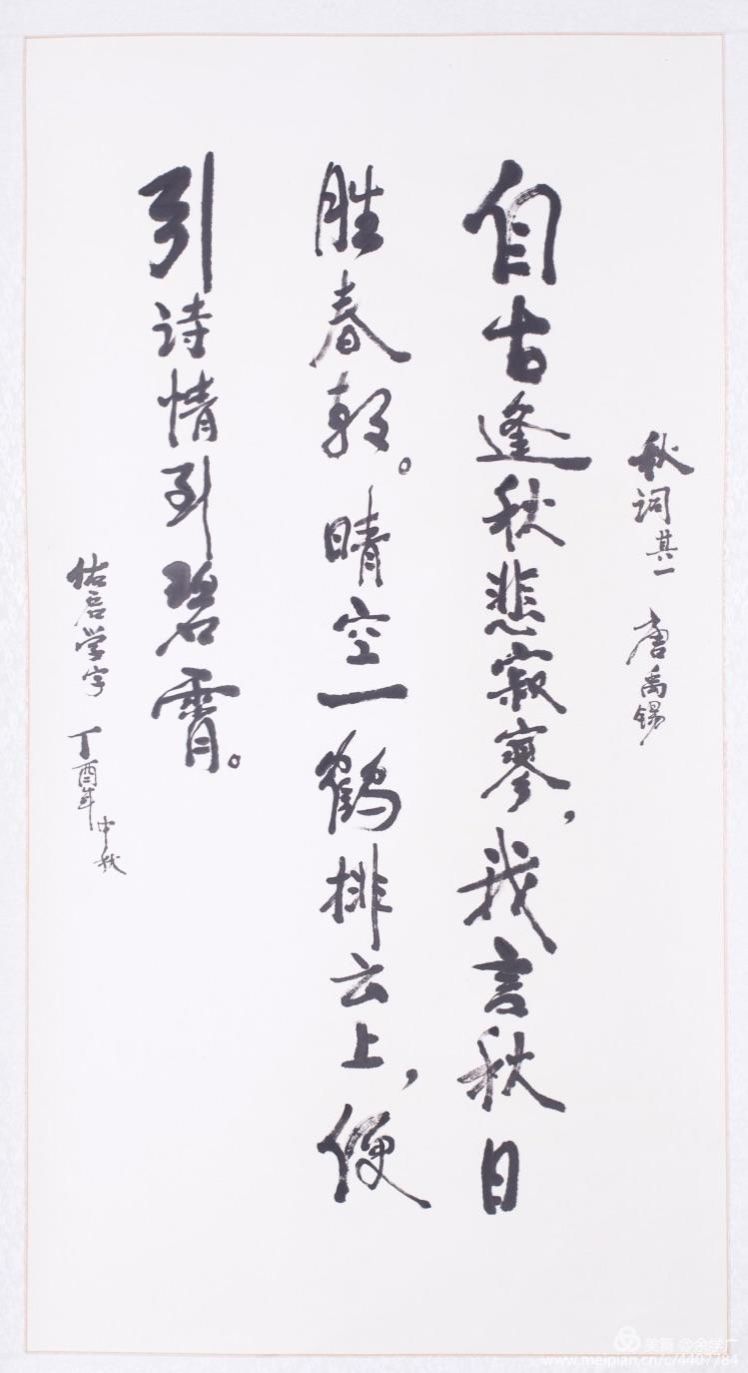 秋词其一 唐禹锡
自古逢秋悲寂寥，我言秋日
胜春朝。晴空一鹤排云上，便
引诗情到碧霄。
佑启学字 丁酉年中秋
美篇 @余学广
www.meipian.cn/c/4407784